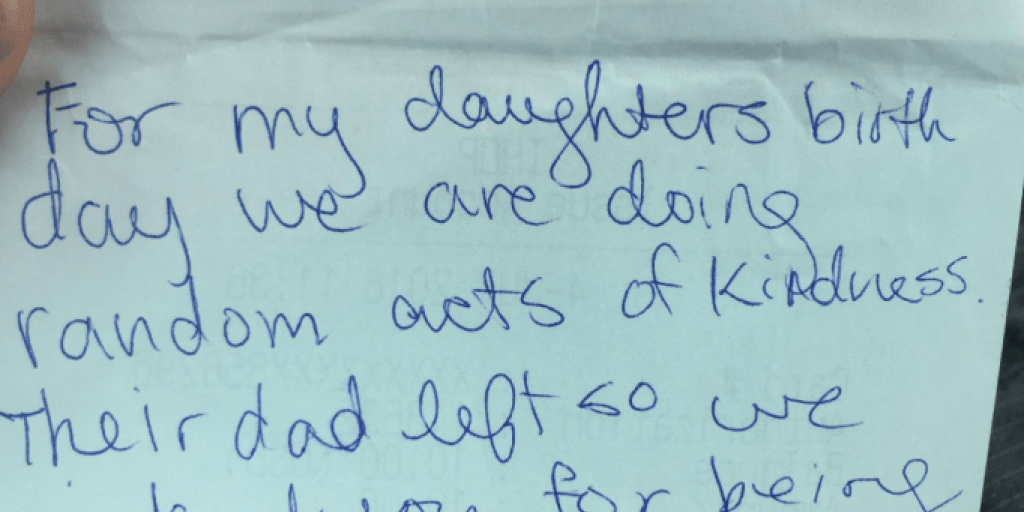 For my daughters birth
day we are doing
random acts of Kindness.
Their dad left so we
for being